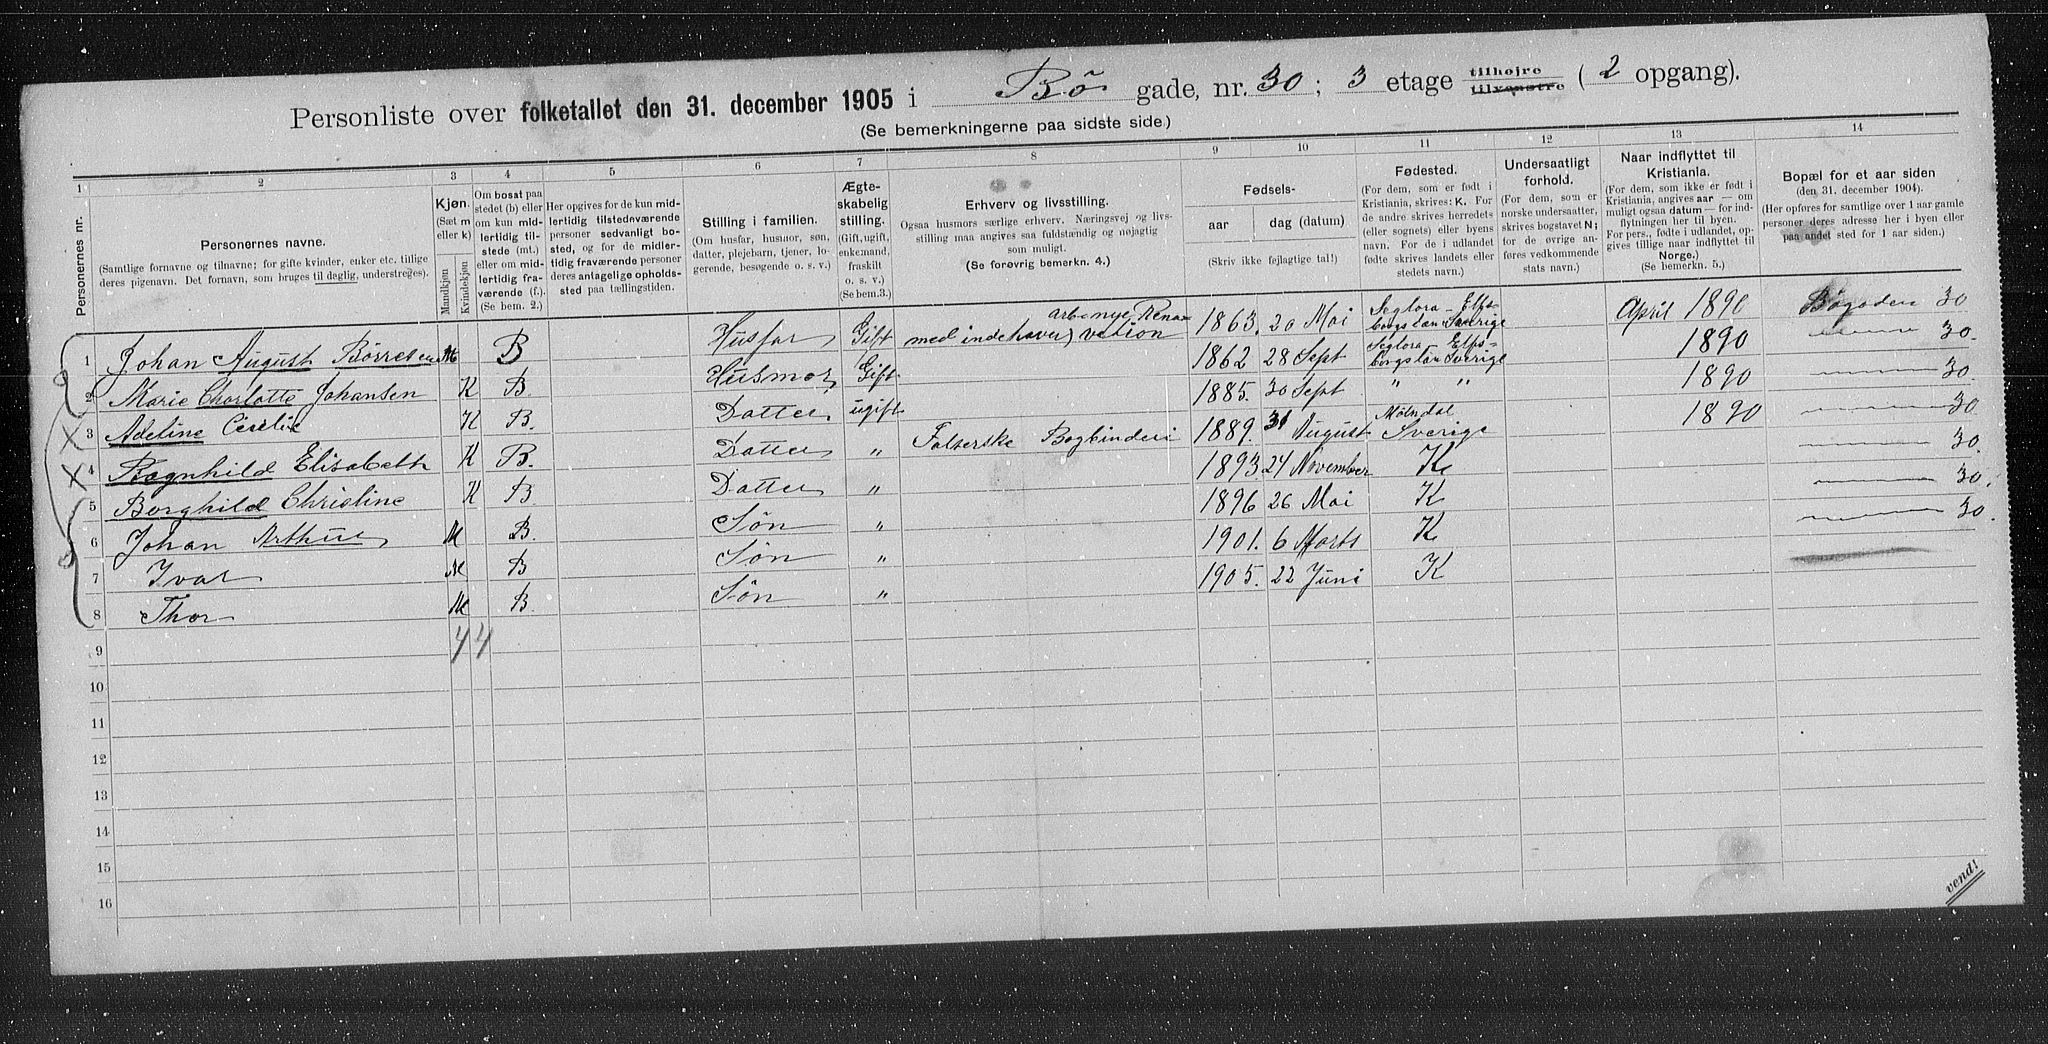 Personliste over folketallet den 31. december 1905 i Bö gade, nr. 30; 3 etage tilhøjre tilvenstre (2 opgang).
(Se bemerkningerne paa sidste side.)
1 2 3 4 5 6 7 8 9 10 11 12 13 14
Personernes nr.
Personernes navne.
(Samtlige fornavne og tilnavne; for gifte kvinder, enker etc. tillige deres pigenavn. Det fornavn, som bruges til deglig, understreges).
Kjøn.
(Sæt m eller k)
Mandkjøn Kvindekjøn
Om bosat paa stedet (b) eller om kun midlertidig tilstede (mt.) eller om midlertidig fraværende (f.). (Se bem. 2.)
Her opgives for de kun midlertidig tilstedværende personer sedvanligt bosted, og for de midlertidig fraværende personer deres antagelige opholdssted paa tællingstiden.
Stilling i familien.
(Om husfar, husmor, søn, datter, plejebarn, tjener, logerende, besøgende o. s. v.)
Ægteskabelig stilling.
(Gift, ugift, enkemand, fraskilt o. s. v.) (Se bem. 3.)
Erhverv og livsstilling.
Ogsaa husmors særlige erhverv. Næringsvej og livsstilling maa angives saa fuldstændig og nøjagtig som muligt.
(Se forøvrig bemerkn. 4.)
Fødsels-
aar dag (datum)
(Skriv ikke fejlagtige tal!)
Fødested.
(For dem, som er født i Kristiania, skrives: K. For de andre skrives herredets (eller sognets) eller byens navn. For de i udlandet fødte skrives landets eller stedets navn.)
Undersaatligt forhold.
(For dem, som er norske undersaatter, skrives bogstavet N; for de øvrige anføres vedkommende stats navn.)
Naar indflyttet til Kristiania.
(For dem, som ikke er født i Kristiania, angives aar — om muligt ogsaa datum — for indflytningen her til byen. For pers., fødte i udlandet, opgives tillige naar indflyttet til Norge.)
(Se bemerkn. 5.)
Bopæl for et aar siden
(den 31. december 1904).
(Her opføres for samtlige over 1 aar gamle personer deres adresse her i byen eller paa andet sted for 1 aar siden.)
1 Johan August Börresen M B Husfar Gift med indehaver 1863. 20 Mai Seglora Elfsborgslän Sverige April 1890 Bögaden 30
2 Marie Charlotte Johansen K B. Husmor Gift 1862 28 Sept Seglora Elfsborgslän Sverige 1890 " 30.
3 Adeline Cecelie K B. Datter ugift 1885. 30 Sept " " 1890 " 30.
4 Ragnhild Elisabeth K B. Datter " Falserske Bogbinderi 1889. 31 August Mölndal Sverige 1890 " 30
5 Borghild Christine K B Datter " 1893. 24 November K " 30.
6 Johan Arthur M B. Sön " 1896 26 Mai K " 30.
7 Ivar M B Sön " 1901. 6 Marts K " 30.
8 Thor M B. Sön " 1905. 22 Juni K
9 4 4
10
11
12
13
14
15
16
vend!